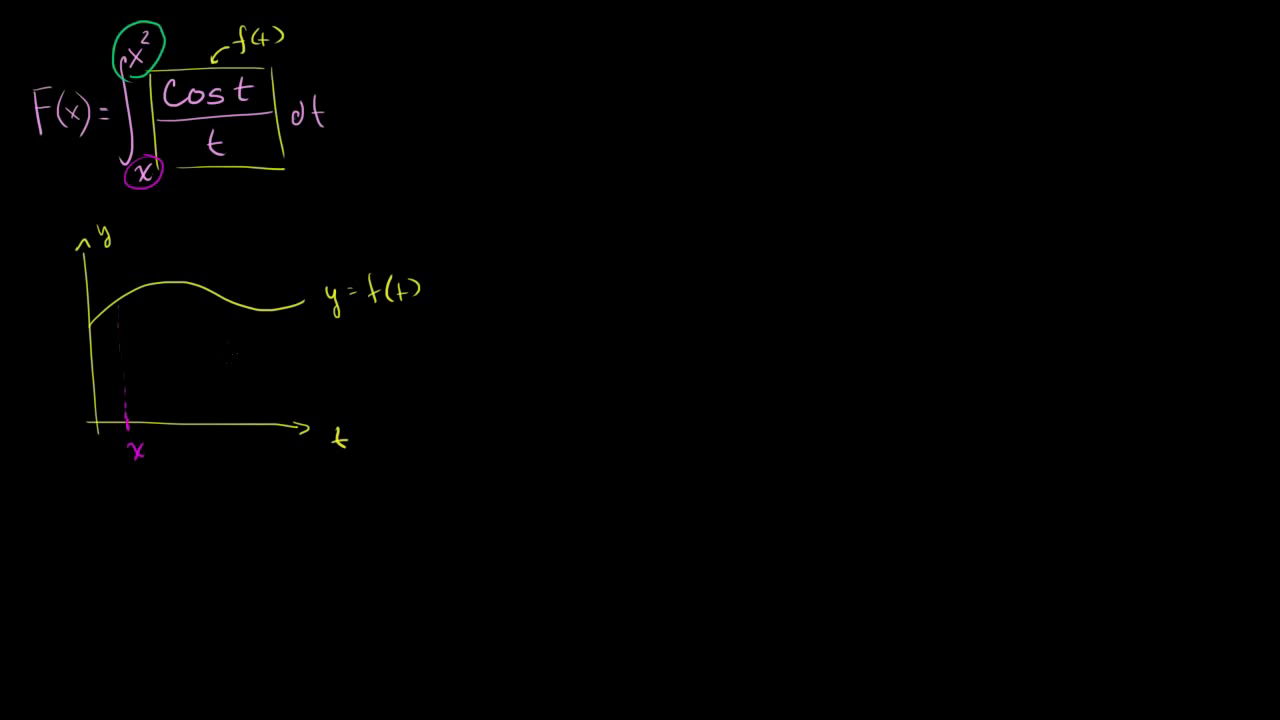 f(t)
F(x) = ∫ₓ^{x²} cos t / t dt
y
y = f(t)
t
x